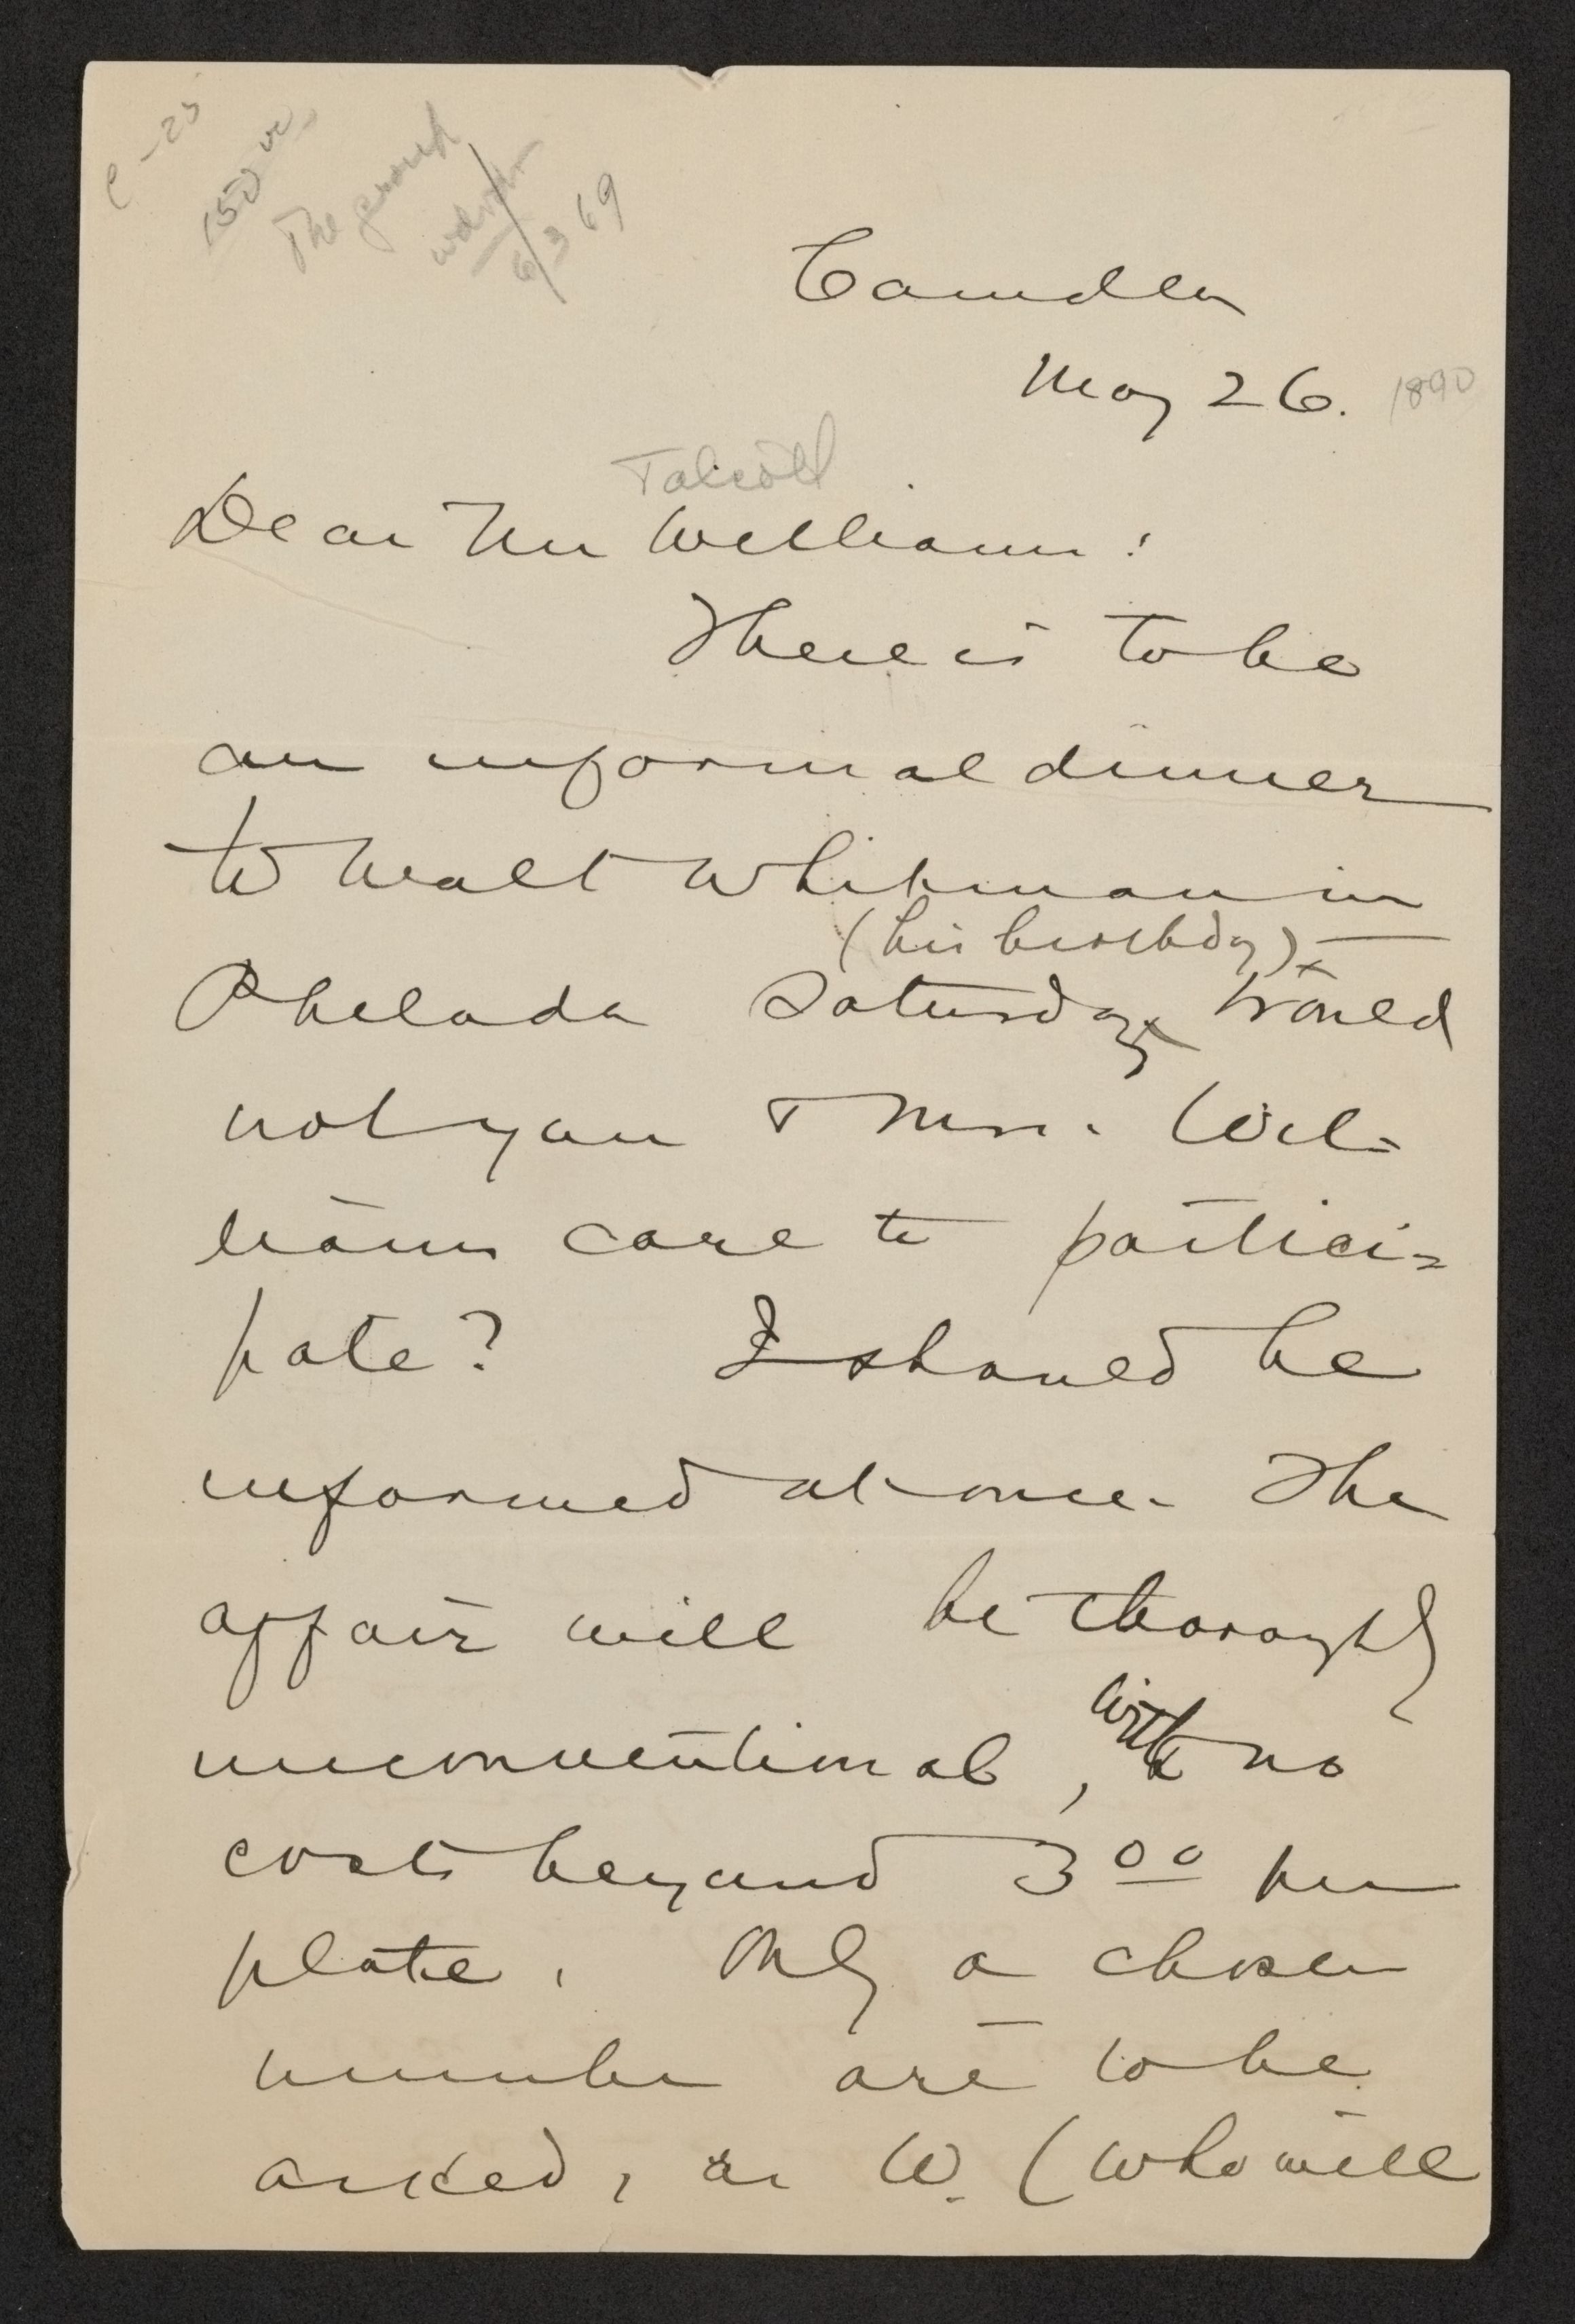 C-25
150 00
The group
6/3 69
Camden
May 26. 1890
Talcott
Dear Mr Williams:
There is to be
an informal dinner
to Walt Whitman in
(his birthday)
Philada Saturday would
not you & Mrs. Wil-
liams care to partici-
pate? I should be
informed at once. The
affair will be thoroughly
unconventional, with no
costs beyond 3 00 per
plate. Only a chosen
number are to be
asked, as W. (who will